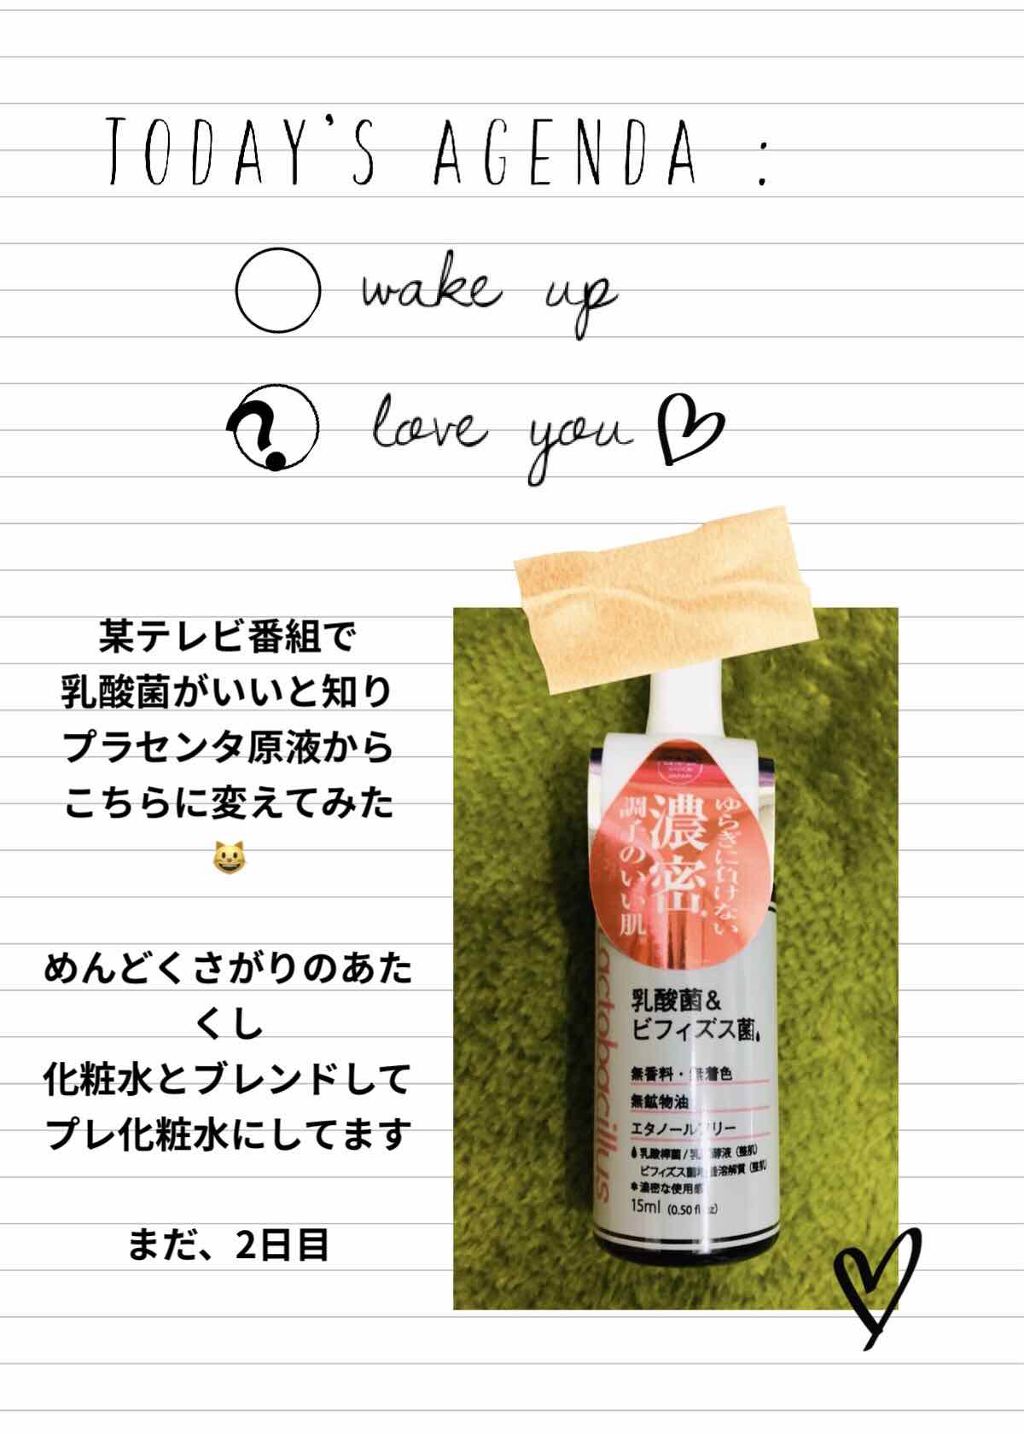 TODAY'S AGENDA :
wake up
?
love you
某テレビ番組で
乳酸菌がいいと知り
プラセンタ原液から
こちらに変えてみた
😺
めんどくさがりのあた
くし
化粧水とブレンドして
プレ化粧水にしてます
まだ、2日目
ゆらぎに負けない
濃密
調子のいい肌
乳酸菌&
ビフィズス菌
actobacillus
無香料・無着色
無鉱物油
エタノールフリー
*濃密な使用感
15ml (0.50 fl oz)